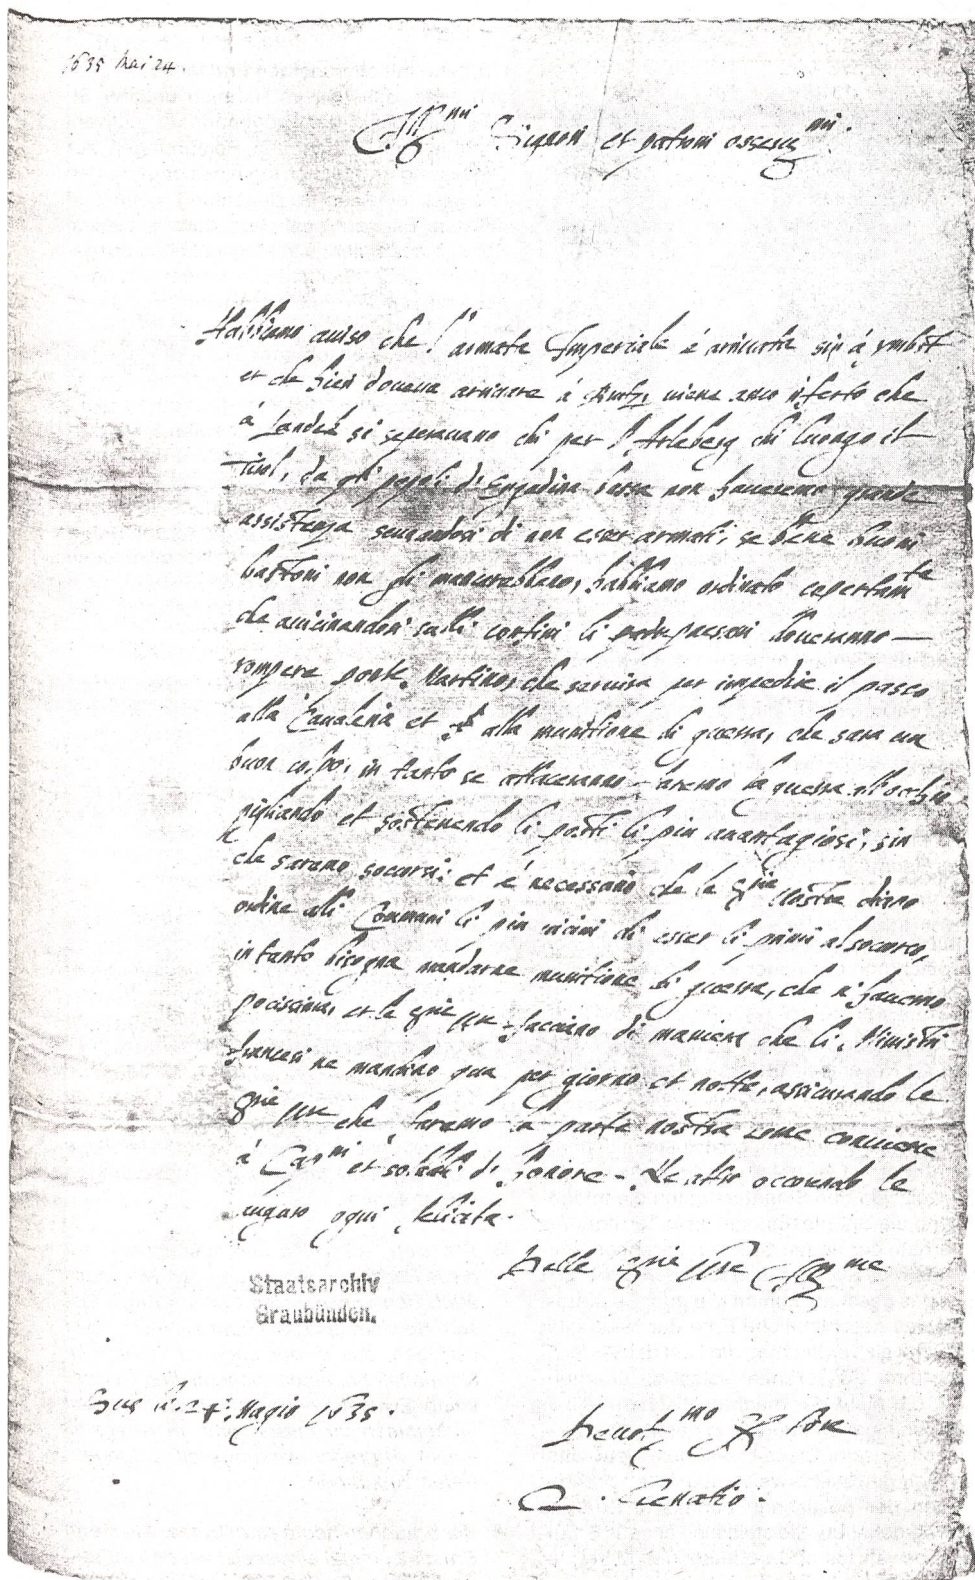 1635 Mai 24.
Ill.mi Signori et patroni osser.mi
Habbiamo auiso che l'armata Imperiale è arriuata sin à
et che hieri doueua arriuare à viene anco riferto che
à Landek si separauano chi per l'Arleberg chi luongo il
Tirol, da gli popoli d'Engadina bassa non haueremo grande
assistenza scusandosi di non esser armati, se bene buoni
bastoni non gli mancarebbano, habbiamo ordinato
che auicinandosi salli confini li paesani doueranno —
rompere ponte Martino, che seruira per impedire il passo
alla Caualeria et alla munitione di guerra, che sara un
buon colpo, in tanto se attaceranno faremo la guerra all'occhio
pigliando et sostenendo li posti li piu auantagiosi, sin
che saremo socorsi: et è necessario che le Srie Vostre diano
ordine alli Commani li piu vicini di esser li primi al socorso,
in tanto bisogna mandarne munitione di guerra, che n'hauemo
pocissima, et le Srie Vre facciano di maniera che li Ministri
francesi ne mandino qua per giorno et notte, assicurando le
Srie Vre che faremo la parte nostra come conuiene
à Cap.ni et soldati d'honore - Ne altro occorrendo le
auguro ogni felicita.
Delle Srie Vre Ill.me
Staatsarchiv
Graubünden.
Sus li 24 Magio 1635.
Deuot.mo
G. Jenatio.